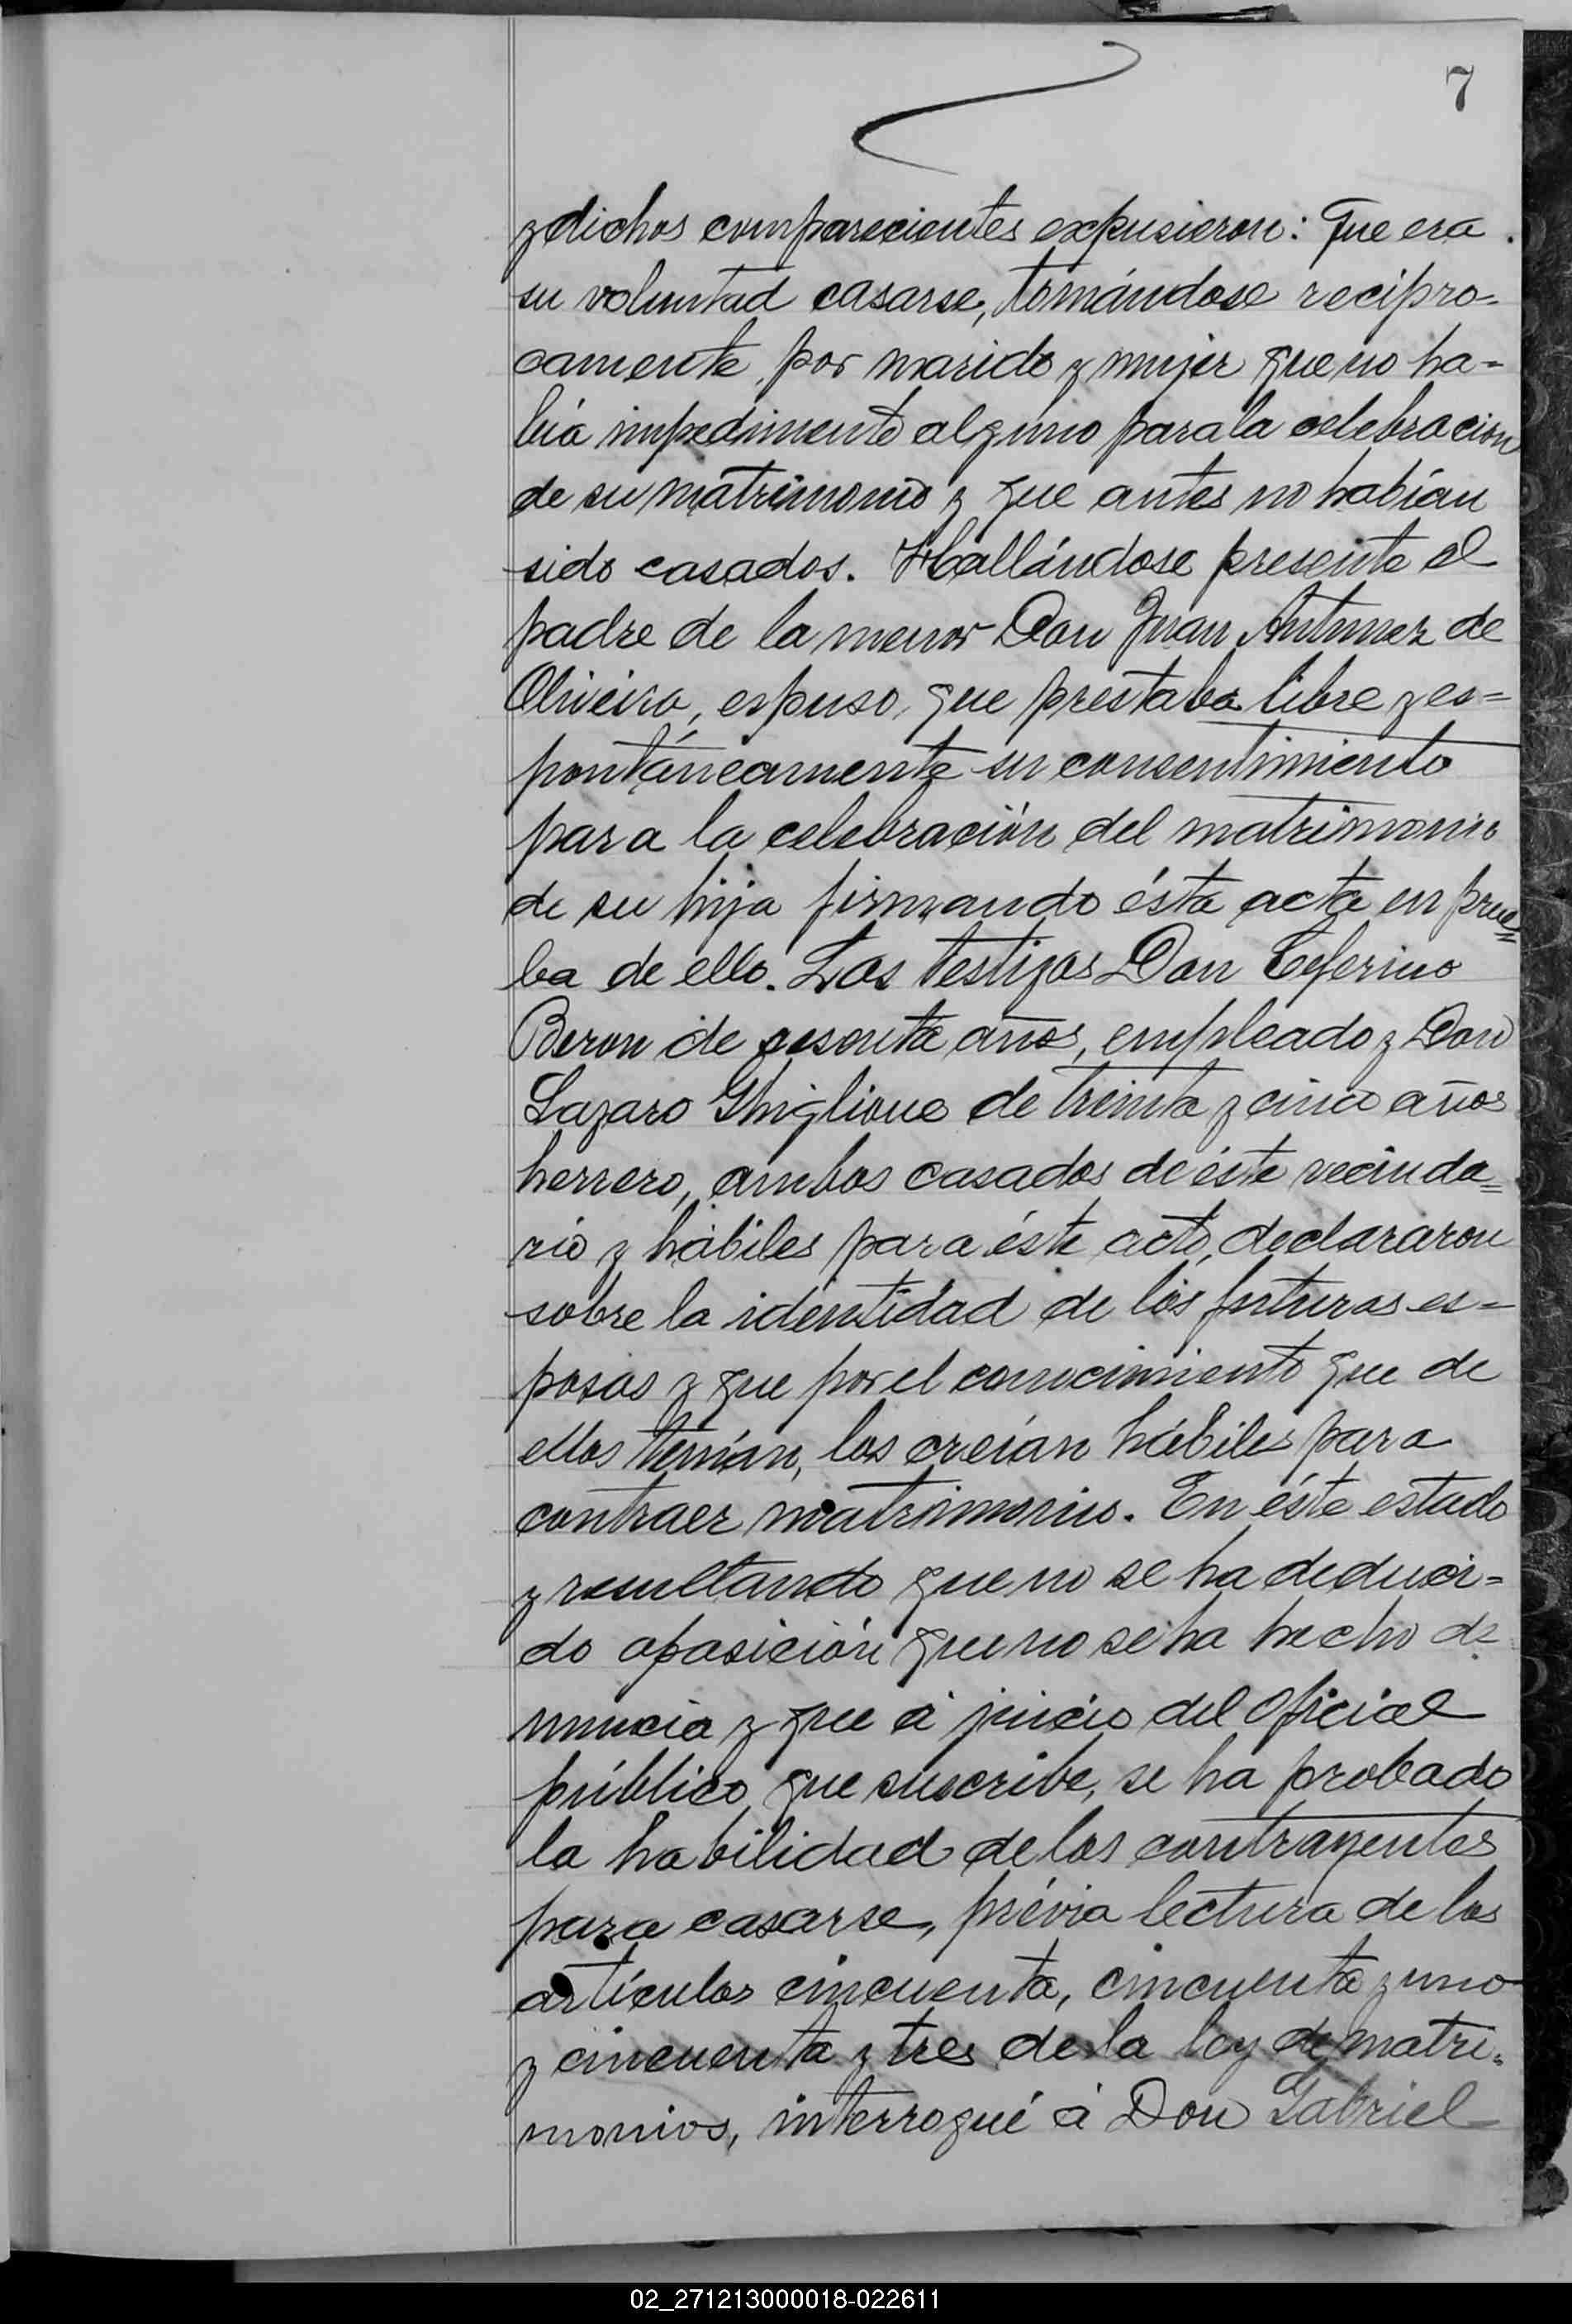 7
y dichos comparecientes expusieron: Que era
su voluntad casarse, tomándose recipro-
camente por marido y mujer que no ha-
bía impedimento alguno para la celebracion
de su matrimonio y que antes no habían
sido casados. Hallándose presente el
padre de la menor Don Juan Antunez de
Oliveira, espuso, que prestaba libre y es=
pontáneamente su consentimiento
para la celebración del matrimonio
de su hija firmando ésta acta en prue=
ba de ello. Los testigos Don Ceferino
Beron de sesenta años, empleado y Don
Lazaro Ghiglione de treinta y cinco años
herrero, ambos casados de éste vecinda=
rio y hábiles para éste acto, declararon
sobre la identidad de los futuros es-
posos y que por el conocimiento que de
ellos tenían, los creían hábiles para
contraer matrimonio. En éste estado
y resultando que no se ha deduci=
do oposición que no se ha hecho de
nuncia y que á juicio del oficial
público que suscribe, se ha probado
la habilidad de los contrayentes
para casarse, prévia lectura de los
artículos cincuenta, cincuenta y uno
y cincuenta y tres de la ley de matri=
monios, interrogué á Don Gabriel
02_271213000018-022611